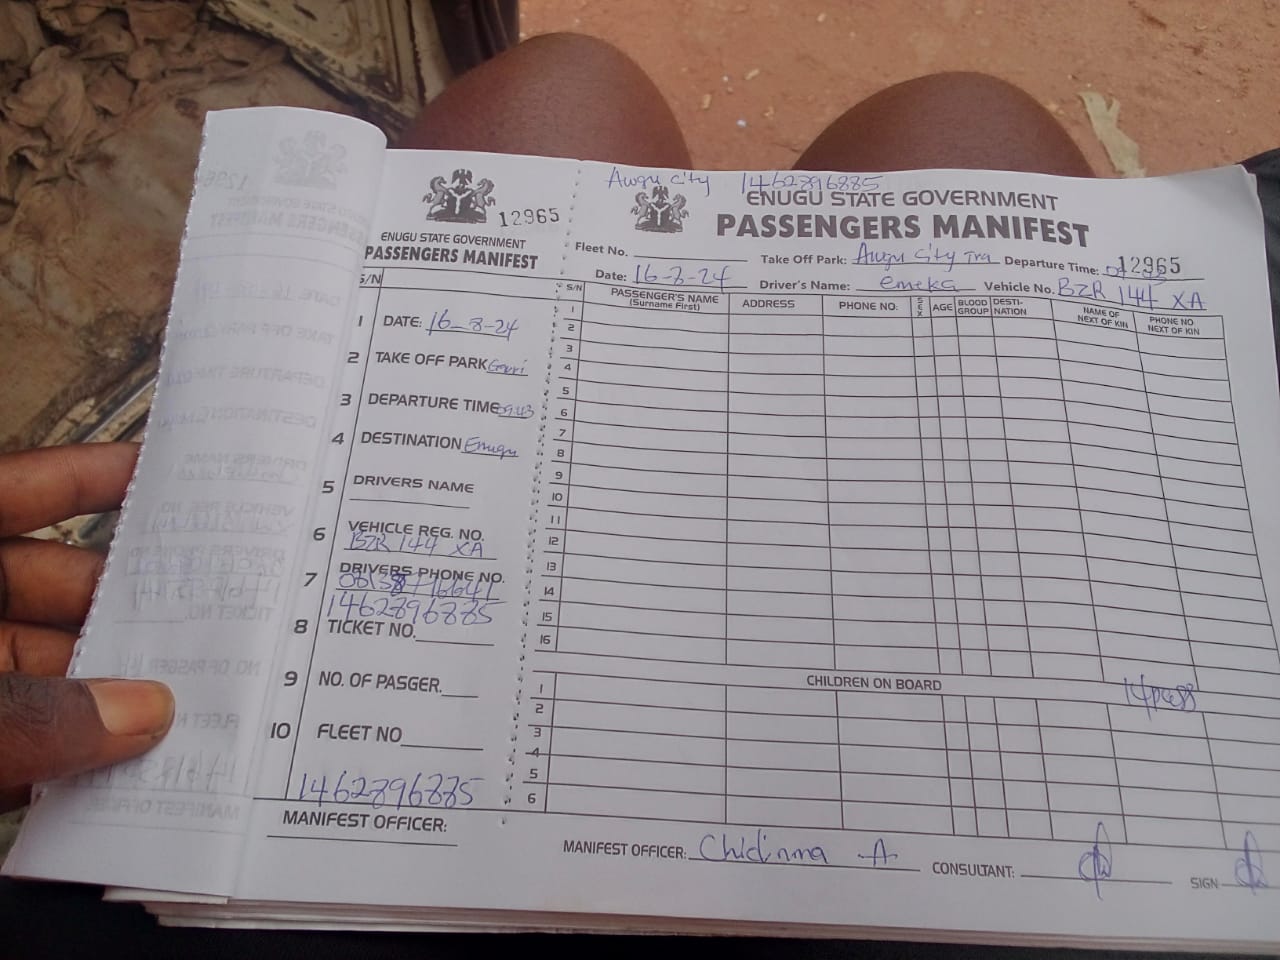 12965
ENUGU STATE GOVERNMENT
PASSENGERS MANIFEST
S/N
1 DATE: 16-8-24
2 TAKE OFF PARK
3 DEPARTURE TIME 09:43
4 DESTINATION Enugu
5 DRIVERS NAME
6 VEHICLE REG. NO.
BZR 144 XA
7 DRIVERS PHONE NO.
1462896885
8 TICKET NO.
9 NO. OF PASGER.
10 FLEET NO
1462896885
MANIFEST OFFICER:
Awgu City 1462896885
ENUGU STATE GOVERNMENT
PASSENGERS MANIFEST
12965
Fleet No. Take Off Park: Awgu City Tra Departure Time:
Date: 16-8-24 Driver's Name: emeka Vehicle No. BZR 144 XA
S/N PASSENGER'S NAME (Surname First) ADDRESS PHONE NO: SEX AGE BLOOD GROUP DESTI-NATION NAME OF NEXT OF KIN PHONE NO NEXT OF KIN
1
2
3
4
5
6
7
8
9
10
11
12
13
14
15
16
CHILDREN ON BOARD
14pass
1
2
3
4
5
6
MANIFEST OFFICER: Chidinma A CONSULTANT: SIGN